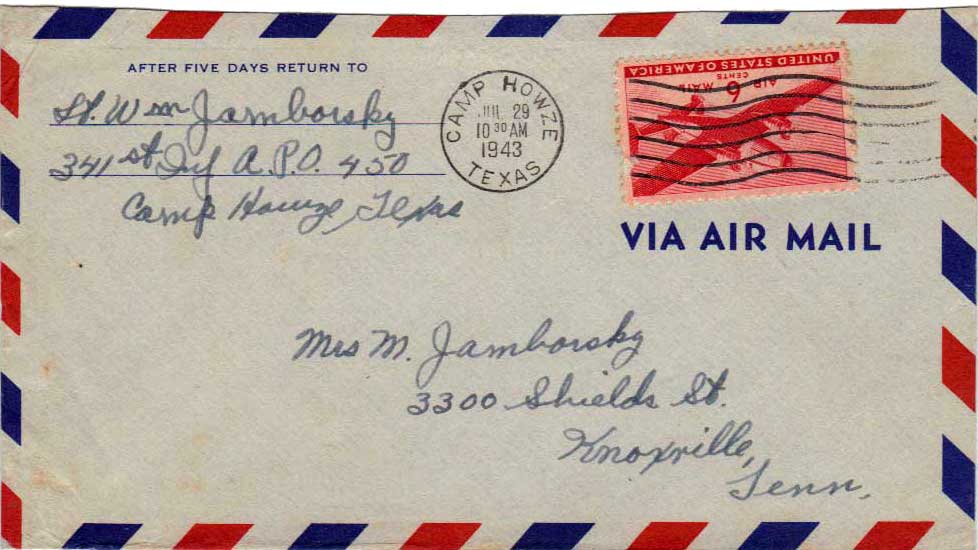 AFTER FIVE DAYS RETURN TO
Lt. Wm Jamborsky
341st Inf A.P.O. 450
Camp Howze, Texas
CAMP HOWZE
JUL 29
10 30 AM
1943
TEXAS
UNITED STATES OF AMERICA
AIR MAIL
6 CENTS
VIA AIR MAIL
Mrs M. Jamborsky
3300 Shields St.
Knoxville,
Tenn.